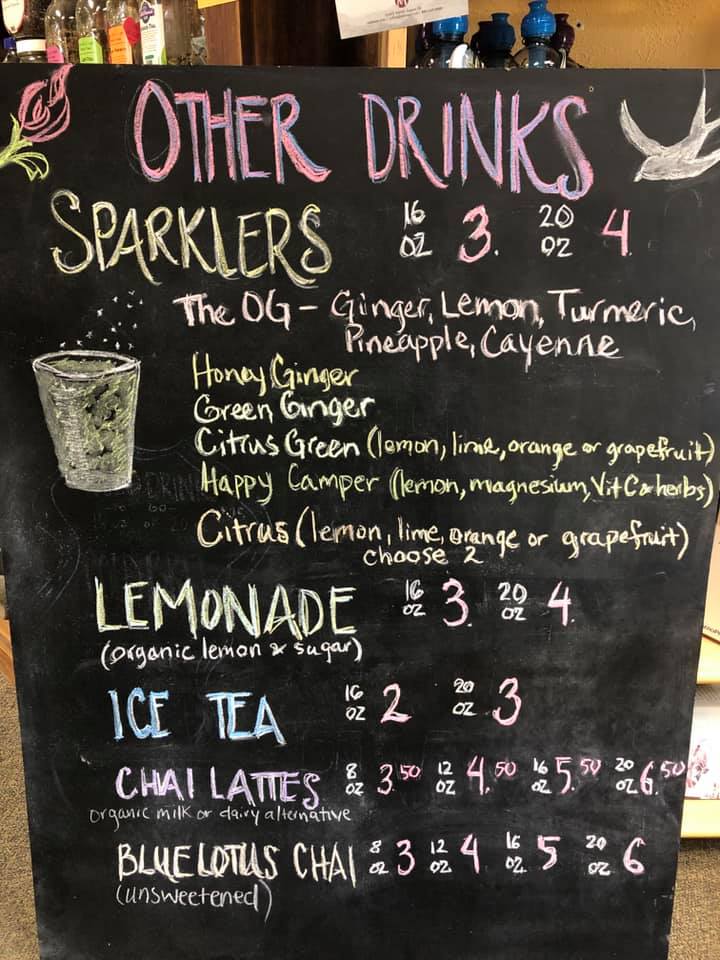 OTHER DRINKS
SPARKLERS 16 OZ 3. 20 OZ 4.
The OG - Ginger, Lemon, Turmeric,
Pineapple, Cayenne
Honey Ginger
Green Ginger
Citrus Green (lemon, lime, orange or grapefruit)
Happy Camper (lemon, magnesium, Vit C & herbs)
Citrus (lemon, lime, orange or grapefruit)
choose 2
LEMONADE 16 OZ 3. 20 OZ 4.
(organic lemon & sugar)
ICE TEA 16 OZ 2 20 OZ 3
CHAI LATTES 8 OZ 3.50 12 OZ 4.50 16 OZ 5.50 20 OZ 6.50
organic milk or dairy alternative
BLUE LOTUS CHAI 8 OZ 3 12 OZ 4 16 OZ 5 20 OZ 6
(unsweetened)